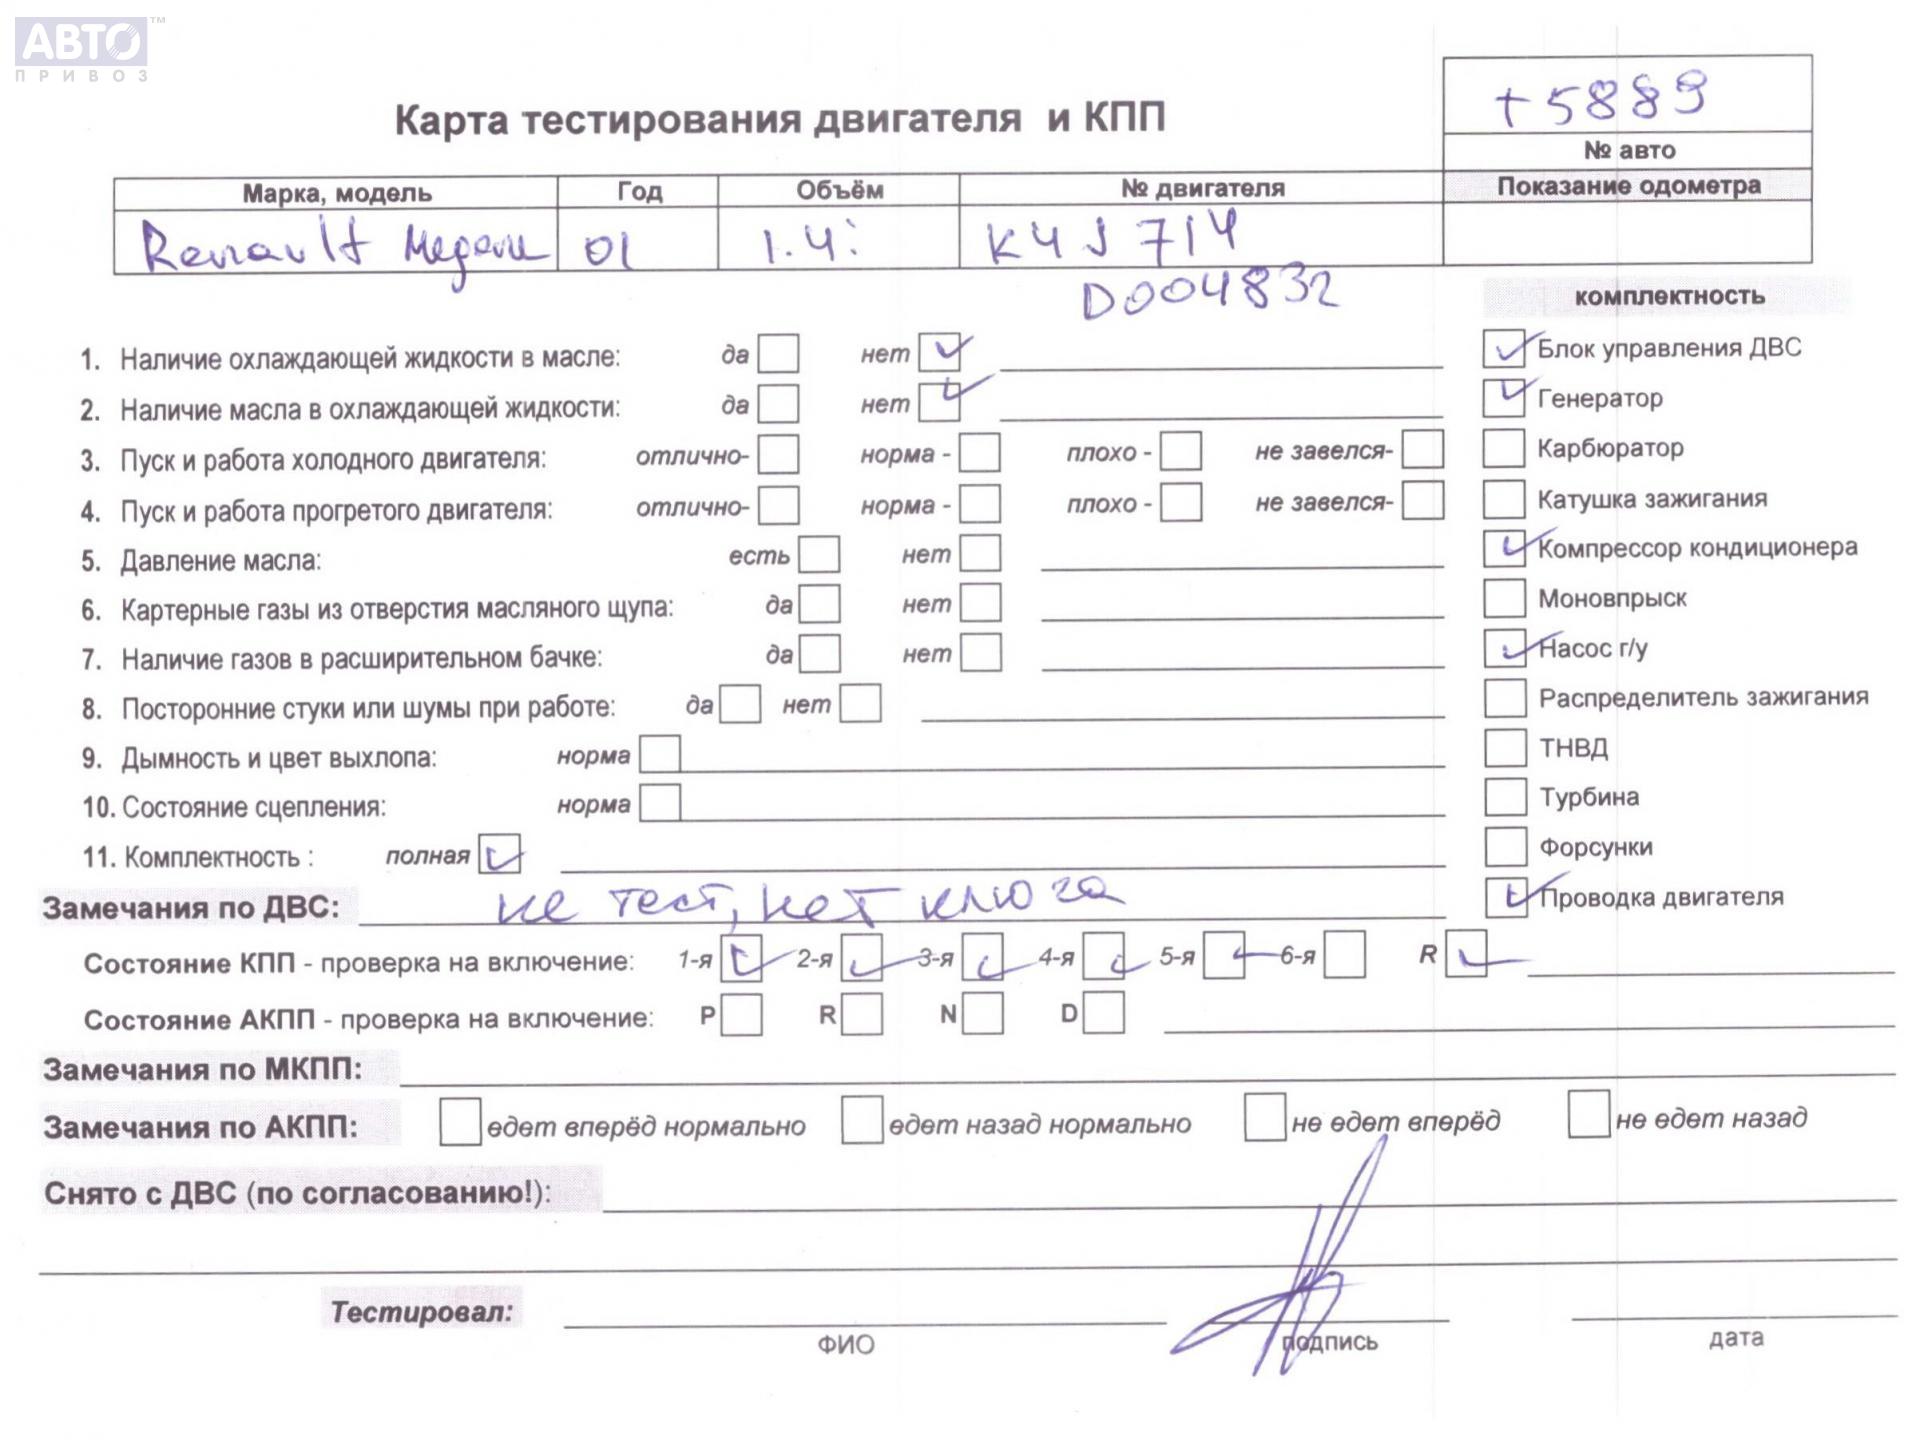 АВТО™
ПРИВОЗ
Карта тестирования двигателя и КПП
+5889
№ авто
Марка, модель Год Объём № двигателя Показание одометра
Renault Меган 01 1.4i K4J 714
D004832
комплектность
1. Наличие охлаждающей жидкости в масле: да нет ✓
Блок управления ДВС ✓
2. Наличие масла в охлаждающей жидкости: да нет ✓
Генератор ✓
3. Пуск и работа холодного двигателя: отлично- норма - плохо - не завелся-
Карбюратор
4. Пуск и работа прогретого двигателя: отлично- норма - плохо - не завелся-
Катушка зажигания
5. Давление масла: есть нет
Компрессор кондиционера ✓
6. Картерные газы из отверстия масляного щупа: да нет
Моновпрыск
7. Наличие газов в расширительном бачке: да нет
Насос г/у ✓
8. Посторонние стуки или шумы при работе: да нет
Распределитель зажигания
9. Дымность и цвет выхлопа: норма
ТНВД
10. Состояние сцепления: норма
Турбина
11. Комплектность : полная ✓
Форсунки
Замечания по ДВС: не тест, нет ключа
Проводка двигателя ✓
Состояние КПП - проверка на включение: 1-я ✓ 2-я ✓ 3-я ✓ 4-я ✓ 5-я ✓ 6-я R ✓
Состояние АКПП - проверка на включение: P R N D
Замечания по МКПП:
Замечания по АКПП: едет вперёд нормально едет назад нормально не едет вперёд не едет назад
Снято с ДВС (по согласованию!):
Тестировал:
ФИО подпись дата